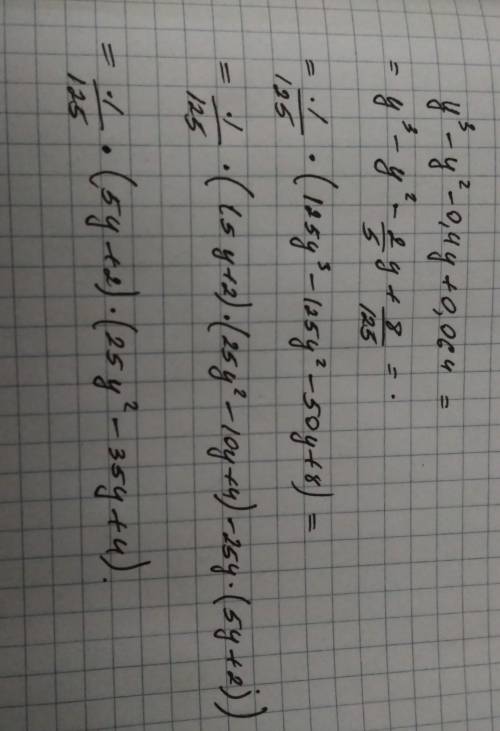 y³ - y² - 0,4y + 0,064 =
= y³ - y² - 2/5 y + 8/125 = .
= 1/125 · (125y³ - 125y² - 50y + 8) =
= 1/125 · ((5y + 2) · (25y² - 10y + 4) - 25y · (5y + 2))
= 1/125 · (5y + 2) · (25y² - 35y + 4).